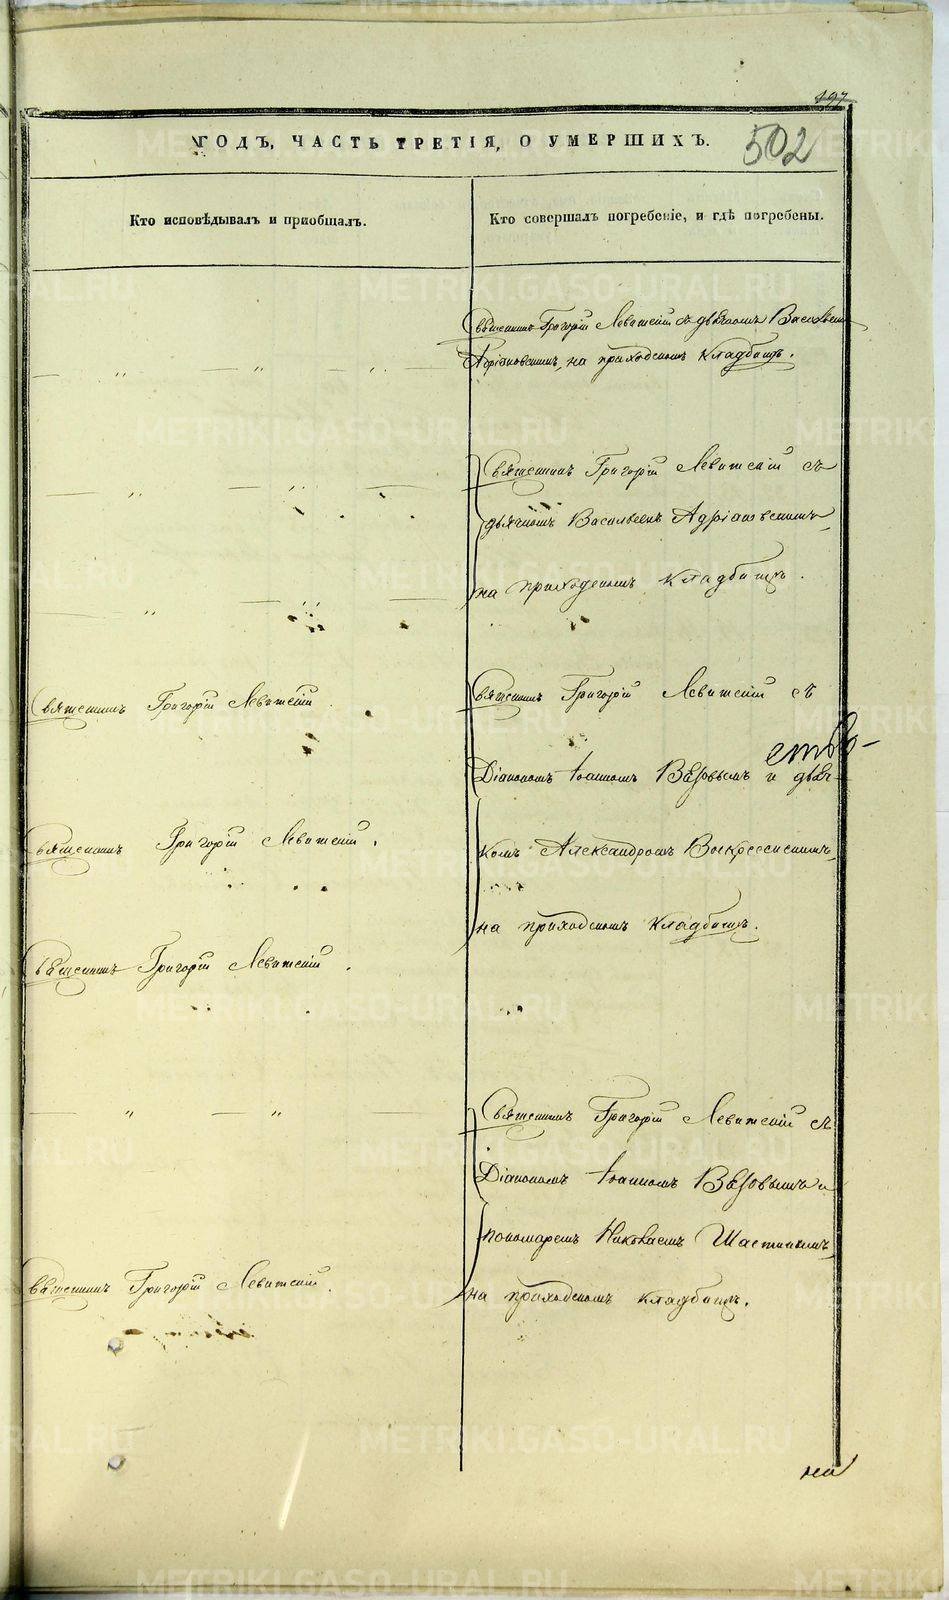 197
502
ГОДЪ, ЧАСТЬ ТРЕТІЯ, О УМЕРШИХЪ.
Кто исповѣдывалъ и пріобщалъ.
Кто совершалъ погребеніе, и гдѣ погребены.
Священникъ Григорій Левитскій съ дьячкомъ Васильемъ
Адріановскимъ, на приходскомъ кладбищѣ.
Священникъ Григорій Левитскій съ
дьячкомъ Васильемъ Адріановскимъ
на приходскомъ кладбищѣ.
Священникъ Григорій Левитскій
Священникъ Григорій Левитскій съ
Діакономъ Іоанномъ Вязовымъ и дьяч-
Священникъ Григорій Левитскій.
комъ Александромъ Воскресенскимъ,
на приходскомъ кладбищѣ.
Священникъ Григорій Левитскій.
Священникъ Григорій Левитскій съ
Діакономъ Іоанномъ Вязовымъ и
пономаремъ Николаемъ Шастинымъ,
Священникъ Григорій Левитскій.
на приходскомъ кладбищѣ.
METRIKI.GASO-URAL.RU